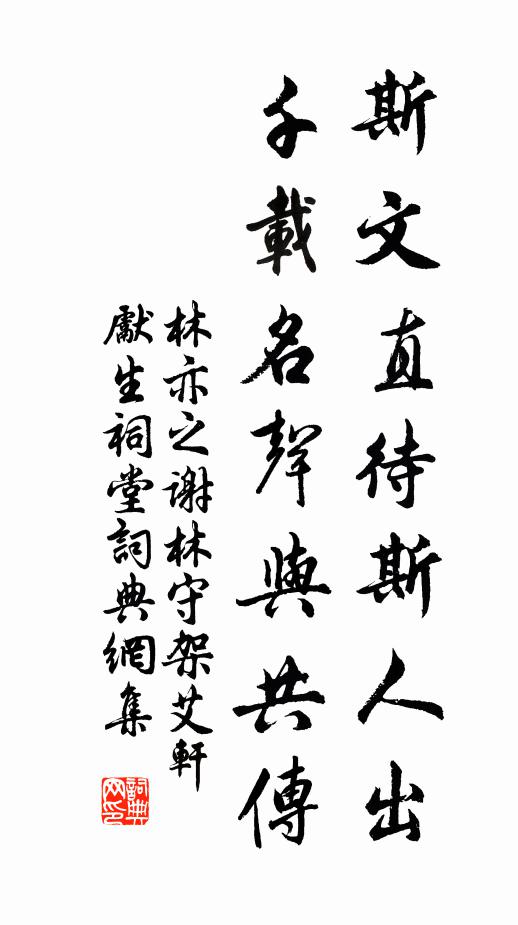 斯文直待斯人出
千載名聲與共傳
林亦之谢林守架艾軒
獻生祠堂詞典網集
詞典网印